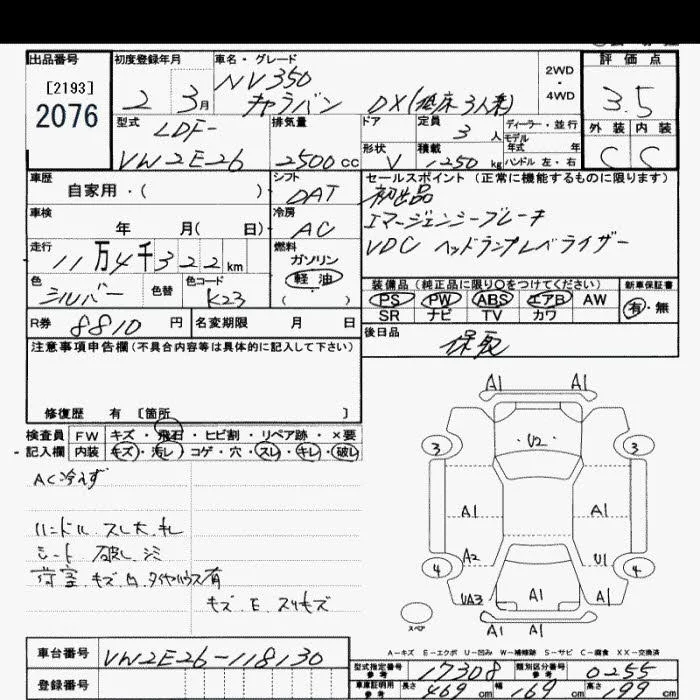 出品番号 初度登録年月 車名・グレード 2WD・4WD 評価点
[2193]
2076
2 3月 NV350
キャラバン DX(低床・3人乗) 3.5
型式 排気量 ドア 定員 3人 ディーラー・並行 外装 内装
LDF-
VW2E26 2500cc 形状 V 積載 1250kg モデル年式 年 ハンドル 左・右 C C
車歴 シフト セールスポイント (正常に機能するものに限ります)
自家用・( ) DAT 初出品
車検 冷房 エマージェンシーブレーキ
年 月( 日) AC VDC ヘッドランプレベライザー
走行 燃料
11万4千322km ガソリン
色 色替 色コード 軽油
シルバー K23 ( )
装備品 (純正品に限り〇をつけてください) 新車保証書
PS PW ABS エアB AW 有・無
SR ナビ TV カワ
R券 8810円 名変期限 月 日 後日品
保取
注意事項申告欄 (不具合内容等は具体的に記入して下さい)
修復歴 有 [箇所 ]
検査員 FW キズ・飛石・ヒビ割・リペア跡・×要
記入欄 内装 キズ・汚レ コゲ・穴・スレ・キレ・破レ
AC冷えず
ハンドル スレ大 キレ
シート 破レ シミ
荷室 キズ 凹 タイヤハウス有
キズ E スリキズ
A1 A1
3 U2 3
A1 A1
A2 U1
4 4
UA3 A1 A1
スペア A1 A1
A-キズ E-エクボ U-凹み W-補修跡 S-サビ C-腐食 XX-交換済
車台番号 VW2E26-118130
登録番号
型式指定番号 参考 17308 類別区分番号 参考 0255
車庫証明用 参考 長さ 469cm 幅 169cm 高さ 199cm